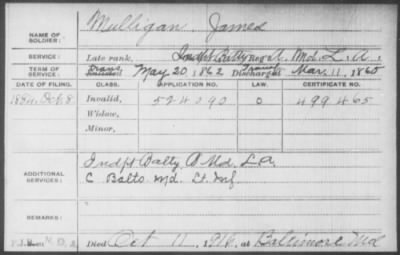 Mulligan, James
NAME OF
SOLDIER:
SERVICE: Late rank, Indpt Batty A, Md. L. A.
TERM OF
SERVICE: Trans May 20, 1862 Discharged Mar. 11, 1865
DATE OF FILING. CLASS. APPLICATION NO. LAW. CERTIFICATE NO.
1884. Oct. 8 Invalid, 524090 0 499465
Widow,
Minor,
ADDITIONAL
SERVICES:
Indpt Batty B Md. L. A.
C Balto. Md. Lt. Inf
REMARKS:
Died Oct 11, 1916, at Baltimore Md